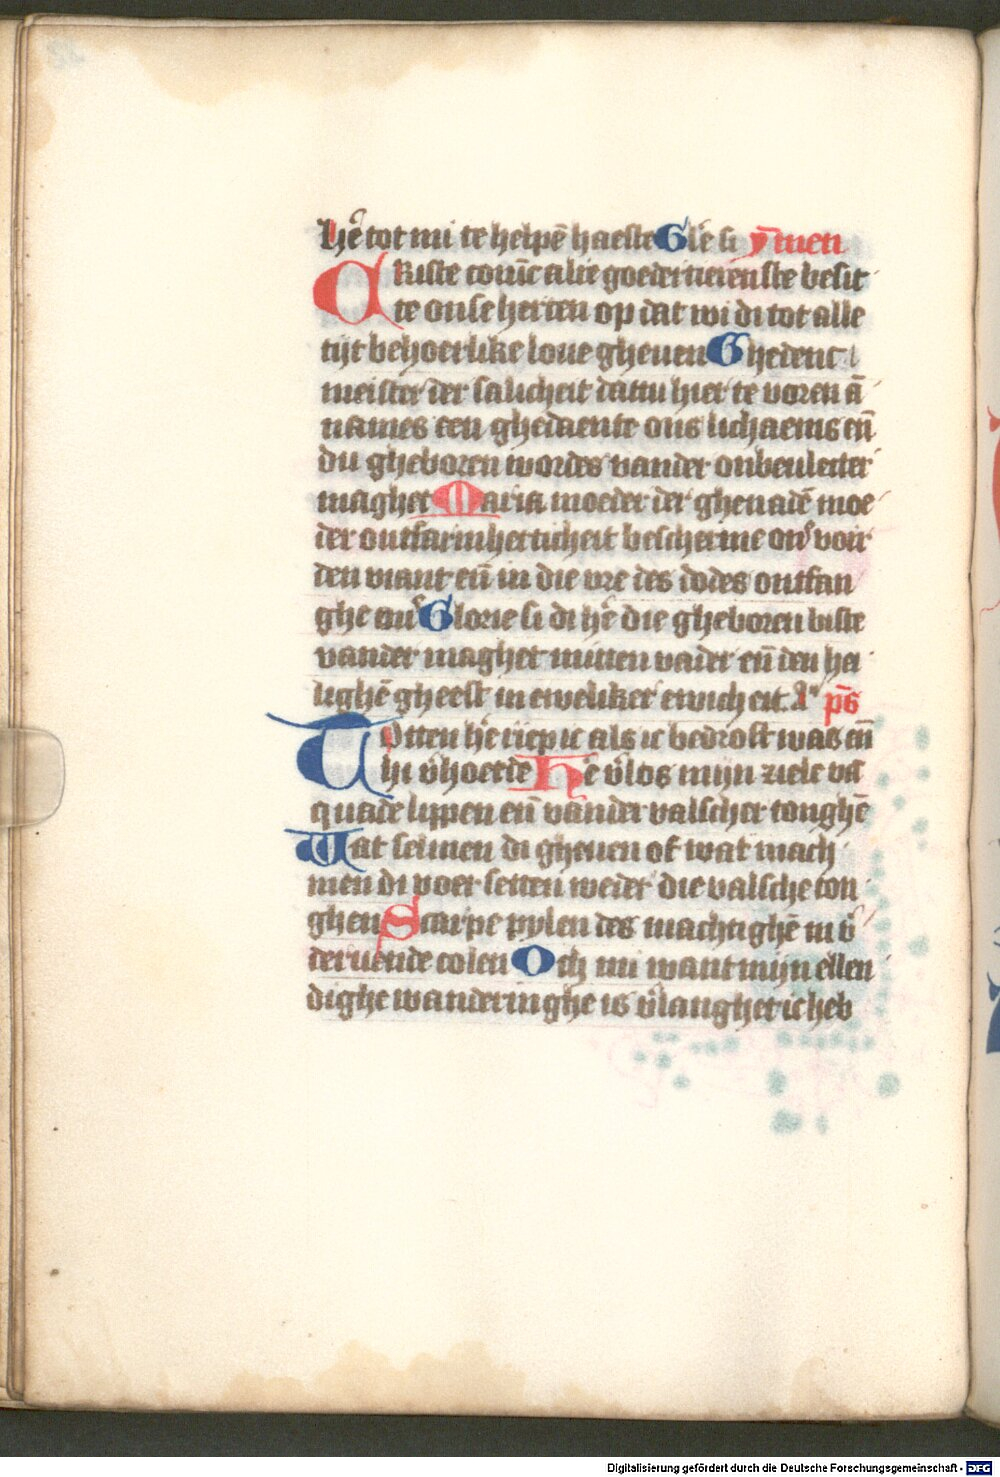 hē tot mi te helpē haeste Glē si ymen
CRiste coninc alre goedertierenste besit
te onse herten op dat wi di tot alle
tijt behoerlike loue gheuen Ghedenc
meister der salicheit dattu hier te voren ā
names een ghedaente ons lichaems en̄
du gheboren wordes vander onbeulecter
maghet Maria moeder der ghenadē moe
der ontfarmherticheit bescherme ons voir
den viant en̄ in die vre des dodes ontfan
ghe ons Glorie si di hē die gheboren biste
vander maghet mitten vader en̄ den hei
lighē gheest in eweliker ewicheit A ps̄
TOtten hē riep ic als ic bedroft was en̄
hi v̄hoerde Hē v̄los mijn ziele vā
quade lippen en̄ vander valscher tonghē
Wat selmen di gheuen of wat mach
men di voer setten weder die valsche ton
ghen Scarpe pylen des machtighē in v̄
deruende colen Och mi want mijn ellen
dighe wanderinghe is v̄langhet ic heb
Digitalisierung gefördert durch die Deutsche Forschungsgemeinschaft - DFG